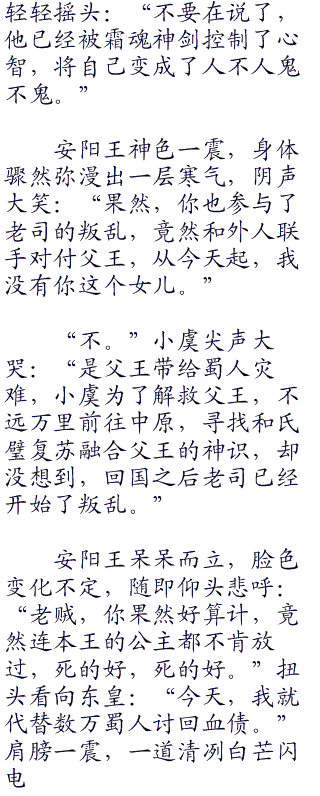 轻轻摇头：“不要在说了，
他已经被霜魂神剑控制了心
智，将自己变成了人不人鬼
不鬼。”
安阳王神色一震，身体
骤然弥漫出一层寒气，阴声
大笑：“果然，你也参与了
老司的叛乱，竟然和外人联
手对付父王，从今天起，我
没有你这个女儿。”
“不。”小虞尖声大
哭：“是父王带给蜀人灾
难，小虞为了解救父王，不
远万里前往中原，寻找和氏
璧复苏融合父王的神识，却
没想到，回国之后老司已经
开始了叛乱。”
安阳王呆呆而立，脸色
变化不定，随即仰头悲呼：
“老贼，你果然好算计，竟
然连本王的公主都不肯放
过，死的好，死的好。”扭
头看向东皇：“今天，我就
代替数万蜀人讨回血债。”
肩膀一震，一道清冽白芒闪
电